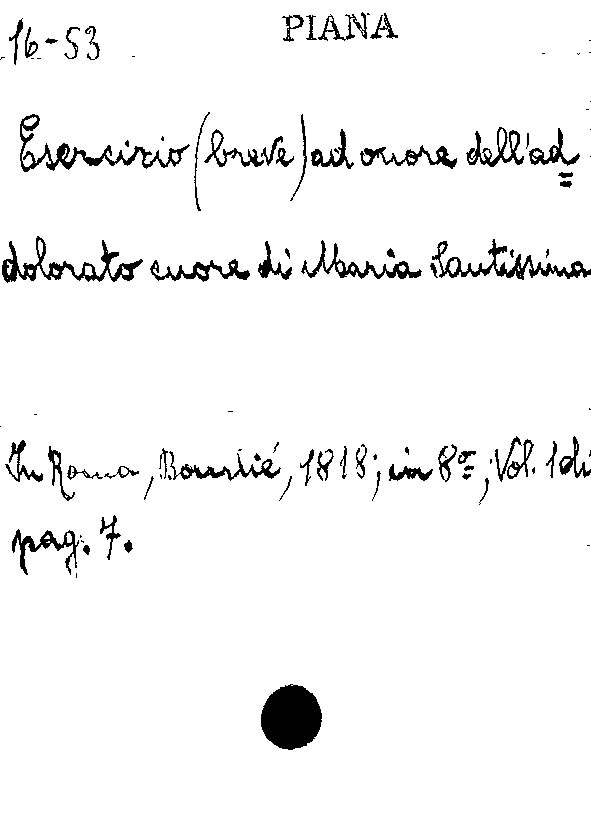 16-53 PIANA
Esercizio (breve) ad onore dell'ad=
dolorato cuore di Maria Santissima
In Roma, Bourlié, 1818; in 8º; Vol. 1 di
pag. 7.